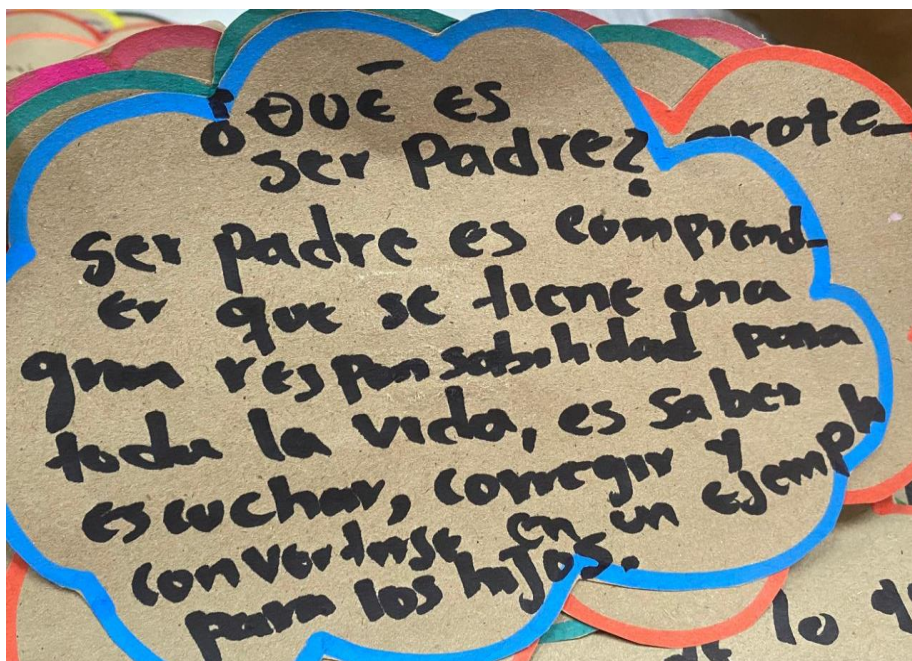 ¿QUÉ ES
ser Padre?
ser padre es comprend-
er que se tiene una
gran responsabilidad para
toda la vida, es saber
escuchar, corregir y
convertirse en un ejemplo
para los hijos.
lo